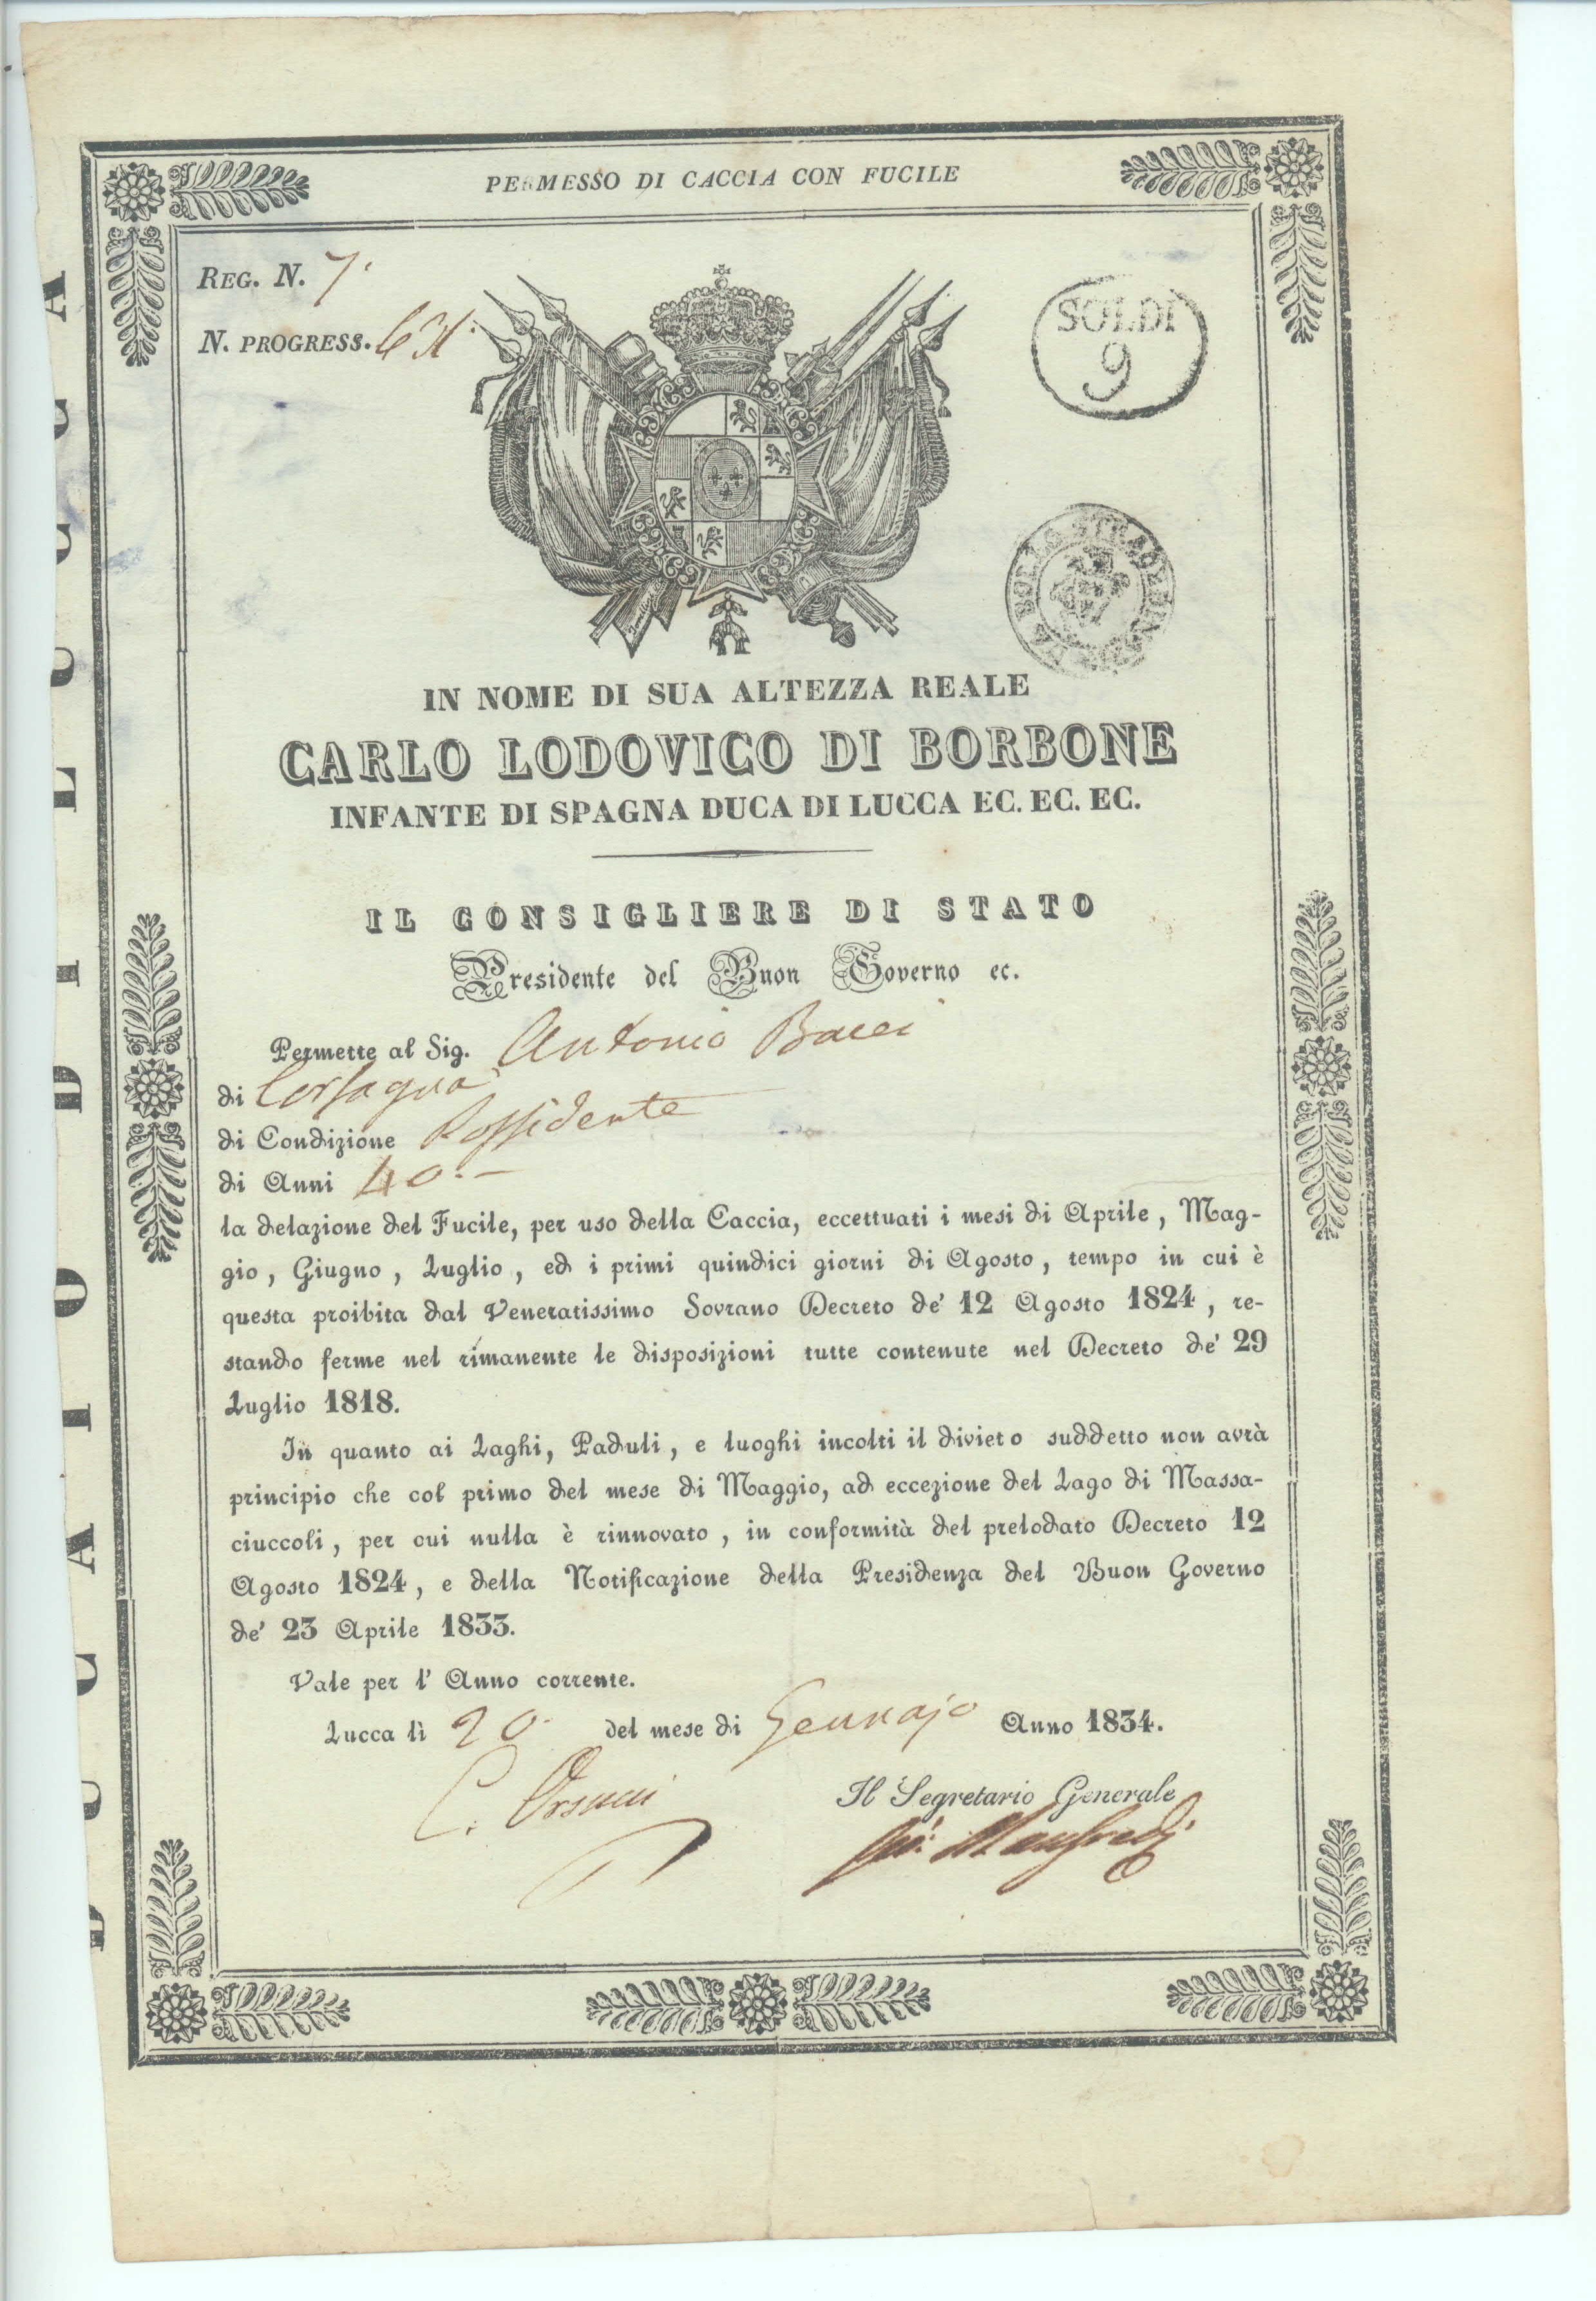 PERMESSO DI CACCIA CON FUCILE
REG. N. 7.
N. PROGRESS.
SOLDI
9
BOLLO STRAORDIN
IN NOME DI SUA ALTEZZA REALE
CARLO LODOVICO DI BORBONE
INFANTE DI SPAGNA DUCA DI LUCCA EC. EC. EC.
IL CONSIGLIERE DI STATO
Presidente del Buon Governo ec.
Permette al Sig. Antonio Bacci
di Corsagna
di Condizione Possidente
di Anni 40.-
la delazione del Fucile, per uso della Caccia, eccettuati i mesi di Aprile, Mag-
gio, Giugno, Luglio, ed i primi quindici giorni di Agosto, tempo in cui è
questa proibita dal Veneratissimo Sovrano Decreto de' 12 Agosto 1824, re-
stando ferme nel rimanente le disposizioni tutte contenute nel Decreto de' 29
Luglio 1818.
In quanto ai Laghi, Paduli, e luoghi incolti il divieto suddetto non avrà
principio che col primo del mese di Maggio, ad eccezione del Lago di Massa-
ciuccoli, per cui nulla è rinnovato, in conformità del prelodato Decreto 12
Agosto 1824, e della Notificazione della Presidenza del Buon Governo
de' 23 Aprile 1833.
Vale per l' Anno corrente.
Lucca lì 20 del mese di Gennajo Anno 1834.
C. Orsucci
Il Segretario Generale
Manfredi
DUCATO DI LUCCA